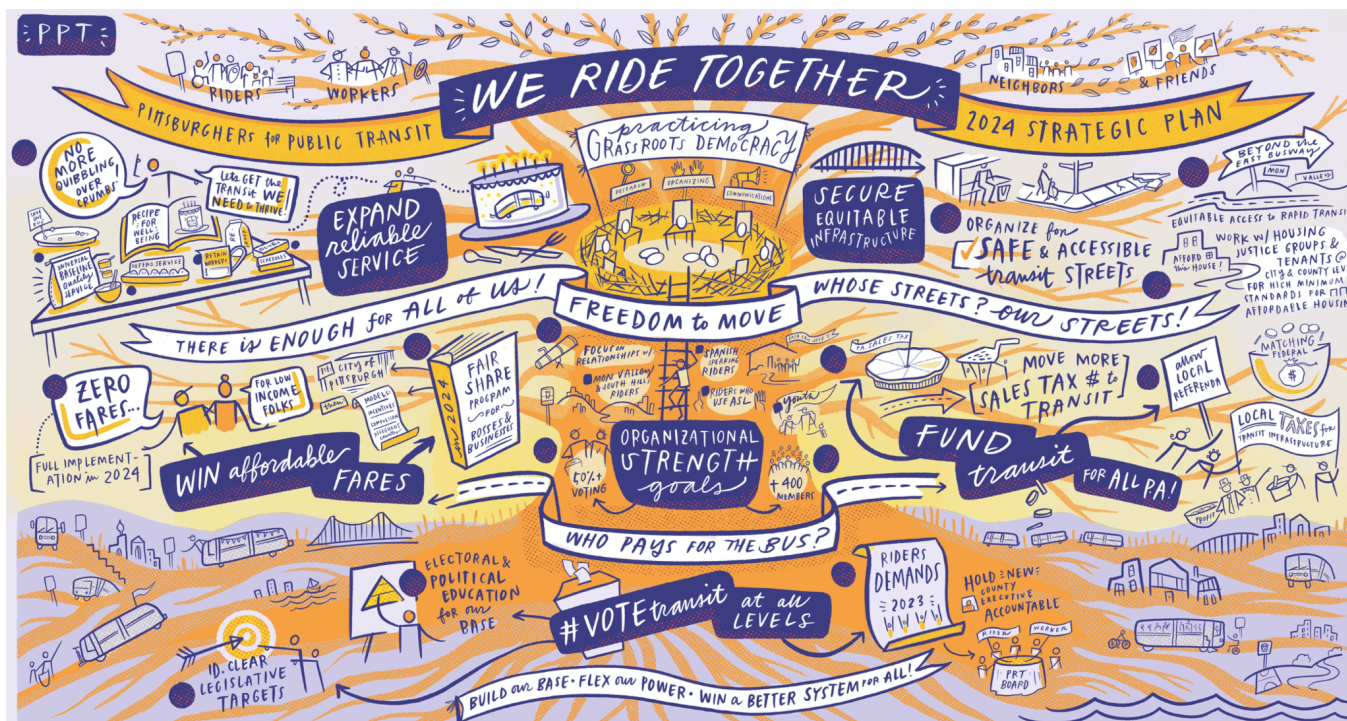 PPT
RIDERS
WORKERS
WE RIDE TOGETHER
NEIGHBORS
& FRIENDS
PITTSBURGHERS for PUBLIC TRANSIT
2024 STRATEGIC PLAN
practicing
GRASSROOTS DEMOCRACY
RESEARCH
ORGANIZING
COMMUNICATIONS
NO
MORE
QUIBBLING
OVER
CRUMBS
LET'S GET THE
TRANSIT WE
NEED to THRIVE!
RECIPE
FOR
WELL-
BEING
UNIVERSAL
BASELINE
Quality
SERVICE
DEFEND SERVICE
RETAIN
WORKERS
SCHEDULES
EXPAND
reliable
SERVICE
SECURE
EQUITABLE
INFRASTRUCTURE
ORGANIZE for
SAFE & ACCESSIBLE
transit STREETS
BEYOND the
EAST BUSWAY
MON
VALLEY
EQUITABLE ACCESS to RAPID TRANSIT
AFFORD
this HOUSE!
WORK W/ HOUSING
JUSTICE GROUPS &
TENANTS @
CITY & COUNTY LEV
FOR HIGH MINIMUM
STANDARDS FOR
AFFORDABLE HOUSIN
THERE is ENOUGH for ALL of US!
FREEDOM to MOVE
WHOSE STREETS? OUR STREETS!
ZERO
FARES...
FOR LOW
INCOME
FOLKS
FULL IMPLEMENT-
ATION in 2024
WIN affordable
FARES
CITY of
PITTSBURGH
then
MODEL:
in 2024
FAIR
SHARE
PROGRAM
FOR
BOSSES &
BUSINESSES
FOCUS ON
RELATIONSHIPS W/
MON VALLEY
& SOUTH HILLS
RIDERS
SPANISH
SPEAKING
RIDERS
RIDERS WHO
USE ASL
Youth
ORGANIZATIONAL
STRENGTH
goals
50%+
VOTING
+400
MEMBERS
PA SALES TAX
MOVE MORE
SALES TAX $ to
TRANSIT
allow
LOCAL
REFERENDA
MATCHING
FEDERAL
$
LOCAL TAXES for
TRANSIT INFRASTRUCTURE
PROFIT
FUND
transit
FOR ALL PA!
WHO PAYS FOR THE BUS?
ELECTORAL &
POLITICAL
EDUCATION
for our
BASE
#VOTE transit
at all
LEVELS
RIDERS
DEMANDS
2023
HOLD NEW
COUNTY
EXECUTIVE
ACCOUNTABLE
RIDER
WORKER
PRT
BOARD
ID. CLEAR
LEGISLATIVE
TARGETS
BUILD our BASE • FLEX our POWER • WIN a BETTER SYSTEM for ALL!